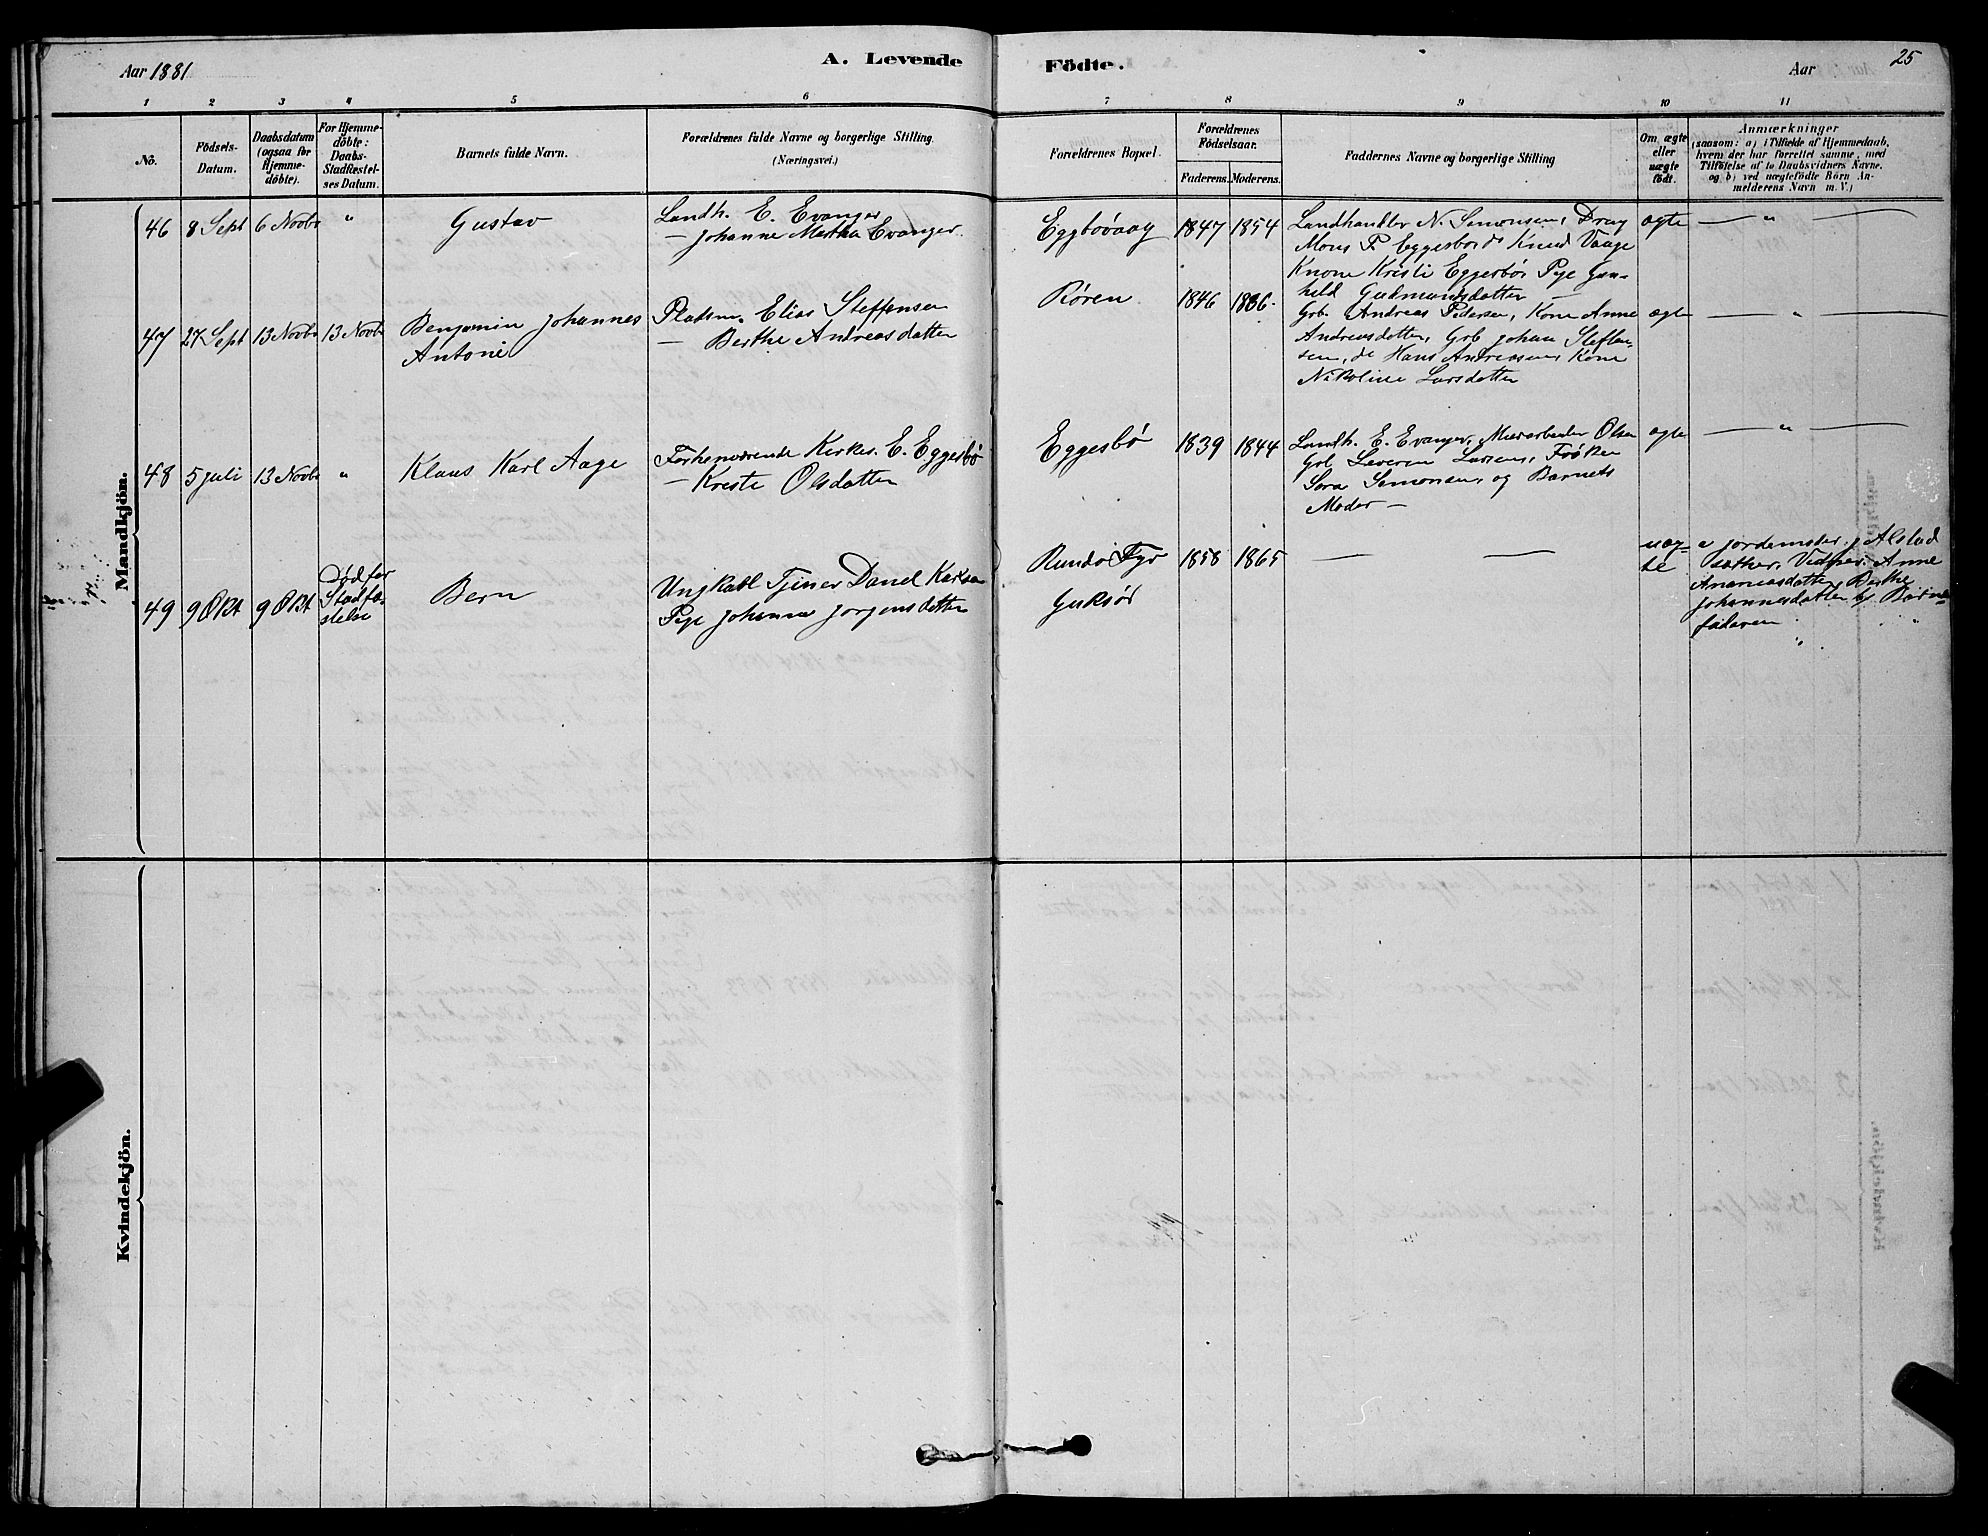 Aar 1881
A. Levende
Födte.
Aar
25
1 2 3 4 5 6 7 8 9 10 11
No.
Födsels-
Datum.
Daabsdatum
(ogsaa for
Hjemme-
döbte).
For Hjemme-
döbte:
Daabs-
Stadfæstel-
ses Datum.
Barnets fulde Navn.
Forældrenes fulde Navne og borgerlige Stilling
(Næringsvei.)
Forældrenes Bopæl.
Forældrenes
Födselsaar.
Faderens. Moderens.
Faddernes Navne og borgerlige Stilling
Om ægte
eller
uægte
födt.
Anmærkninger
(saasom: a) i Tilfælde af Hjemmedaab,
hvem der har forrettet samme, med
Tilföielse af to Daabsvidners Navne,
og b) ved uægtefödte Börn An-
melderens Navn m. V.)
Mandkjön.
46 8 Sept 6 Novbr " Gustav
Landh. E. Evanger
— Johanne Martha Evanger
Eggbøvaag 1847 1854
Landhandler N. Simonsen, Drag
Mons P. Eggesbø ds Knud Vaage
Knone Kristi Eggesbø, Pige Gun-
hild Gudmundsdatter —
ægte — " —
47 27 Sept 13 Novbr 13 Novbr Benjamin Johannes
Antoni
Pladsm. Elias Steffensen
— Berthe Andreasdatter
Røren 1846 1836
Grb. Andreas Pedersen, Kone Anne
Andreasdatter, Grb Johan Steffen-
sen, ds Hans Andreasen, Kone
Nikoline Larsdatter
ægte — " —
48 5 juli 13 Novbr " Klaus Karl Aage
Forhenværende Kirkes. E. Eggesbø
— Kristi Olsdatter
Eggesbø 1839 1844
Landh. E. Evanger, Murarbeider Olsen
Grb Severin Larsen, Frøken
Sara Simonsen, og Barnets
Moder —
ægte — " —
49 9 Okt 9 Okt Død før
Stadfæ-
stelse
Bern
Ungkarl Tjener Danel Karlsen
Pige Johanna Jørgensdatter
Rundø Fyr
Guksør
1858 1865
— —
uæg-
te
a Jordemoder J Alstad
Sæther, Vidner: Anne
Ananiasdatter, Berthe
Johannesdatter b) Barne-
faderen
Kvindekjön.